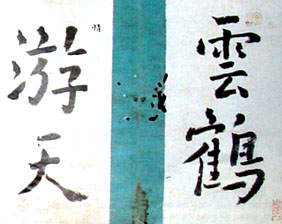 雲鶴
游天